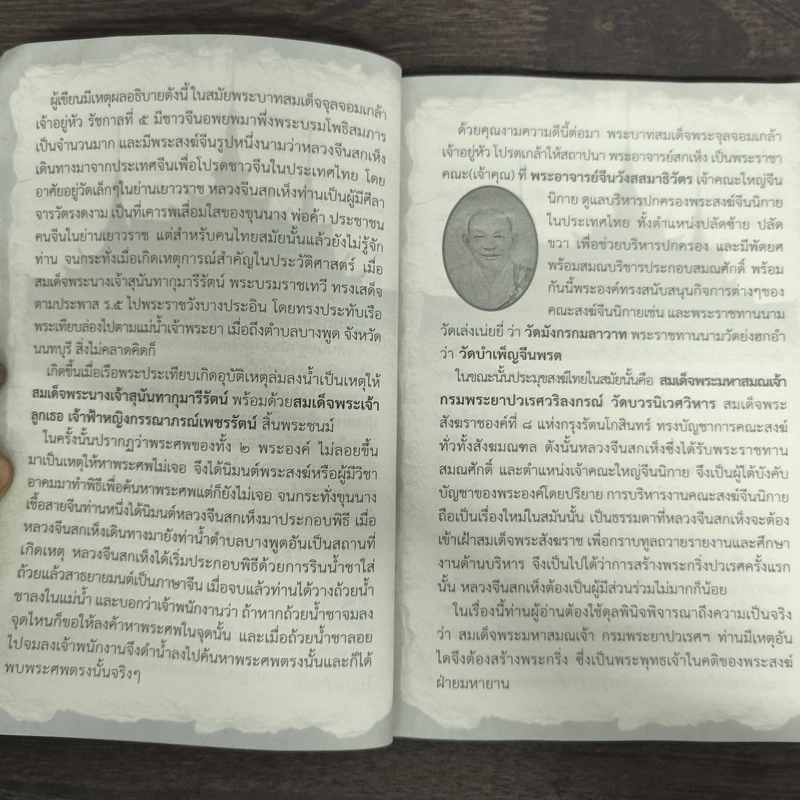 ผู้เขียนมีเหตุผลอธิบายดังนี้ ในสมัยพระบาทสมเด็จจุลจอมเกล้า
เจ้าอยู่หัว รัชกาลที่ ๕ มีชาวจีนอพยพมาพึ่งพระบรมโพธิสมภาร
เป็นจำนวนมาก และมีพระสงฆ์จีนรูปหนึ่งนามว่าหลวงจีนสกเห็ง
เดินทางมาจากประเทศจีนเพื่อโปรดชาวจีนในประเทศไทย โดย
อาศัยอยู่วัดเล็กๆในย่านเยาวราช หลวงจีนสกเห็งท่านเป็นผู้มีศีลา
จารวัตรงดงาม เป็นที่เคารพเสื่อมใสของขุนนาง พ่อค้า ประชาชน
คนจีนในย่านเยาวราช แต่สำหรับคนไทยสมัยนั้นแล้วยังไม่รู้จัก
ท่าน จนกระทั่งเมื่อเกิดเหตุการณ์สำคัญในประวัติศาสตร์ เมื่อ
สมเด็จพระนางเจ้าสุนันทากุมารีรัตน์ พระบรมราชเทวี ทรงเสด็จ
ตามประพาส ร.๕ ไปพระราชวังบางปะอิน โดยทรงประทับเรือ
พระเทียบล่องไปตามแม่น้ำเจ้าพระยา เมื่อถึงตำบลบางพูด จังหวัด
นนทบุรี สิ่งไม่คลาดคิดก็
เกิดขึ้นเมื่อเรือพระประเทียบเกิดอุบัติเหตุล่มลงน้ำเป็นเหตุให้
สมเด็จพระนางเจ้าสุนันทากุมารีรัตน์ พร้อมด้วยสมเด็จพระเจ้า
ลูกเธอ เจ้าฟ้าหญิงกรรณาภรณ์เพชรรัตน์ สิ้นพระชนม์
ในครั้งนั้นปรากฏว่าพระศพของทั้ง ๒ พระองค์ ไม่ลอยขึ้น
มาเป็นเหตุให้หาพระศพไม่เจอ จึงได้นิมนต์พระสงฆ์หรือผู้มีวิชา
อาคมมาทำพิธีเพื่อค้นหาพระศพแต่ก็ยังไม่เจอ จนกระทั่งขุนนาง
เชื้อสายจีนท่านหนึ่งได้นิมนต์หลวงจีนสกเห็งมาประกอบพิธี เมื่อ
หลวงจีนสกเห็งเดินทางมายังท่าน้ำตำบลบางพูดอันเป็นสถานที่
เกิดเหตุ หลวงจีนสกเห็งได้เริ่มประกอบพิธีด้วยการรินน้ำชาใส่
ถ้วยแล้วสาธยายมนต์เป็นภาษาจีน เมื่อจบแล้วท่านได้วางถ้วยน้ำ
ชาลงในแม่น้ำ และบอกว่าเจ้าพนักงานว่า ถ้าหากถ้วยน้ำชาจมลง
จุดไหนก็ขอให้ลงค้าหาพระศพในจุดนั้น และเมื่อถ้วยน้ำชาลอย
ไปจมลงเจ้าพนักงานจึงดำน้ำลงไปค้นหาพระศพตรงนั้นและก็ได้
พบพระศพตรงนั้นจริงๆ
ด้วยคุณงามความดีนี้ต่อมา พระบาทสมเด็จพระจุลจอมเกล้า
เจ้าอยู่หัว โปรดเกล้าให้สถาปนา พระอาจารย์สกเห็ง เป็นพระราชา
คณะ(เจ้าคุณ) ที่ พระอาจารย์จีนวังสสมาธิวัตร เจ้าคณะใหญ่จีน
นิกาย ดูแลบริหารปกครองพระสงฆ์จีนนิกาย
ในประเทศไทย ทั้งตำแหน่งปลัดซ้าย ปลัด
ขวา เพื่อช่วยบริหารปกครอง และมีพัดยศ
พร้อมสมณบริขารประกอบสมณศักดิ์ พร้อม
กันนี้พระองค์ทรงสนับสนุนกิจการต่างๆของ
คณะสงฆ์จีนนิกายเช่น และพระราชทานนาม
วัดเล่งเน่ยยี่ ว่า วัดมังกรกมลาวาท พระราชทานนามวัดย่งฮกอำ
ว่า วัดบำเพ็ญจีนพรต
ในขณะนั้นประมุขสงฆ์ไทยในสมัยนั้นคือ สมเด็จพระมหาสมณเจ้า
กรมพระยาปวเรศวริลงกรณ์ วัดบวรนิเวศวิหาร สมเด็จพระ
สังฆราชองค์ที่ ๘ แห่งกรุงรัตนโกสินทร์ ทรงบัญชาการคณะสงฆ์
ทั่วทั้งสังฆมณฑล ดังนั้นหลวงจีนสกเห็งซึ่งได้รับพระราชทาน
สมณศักดิ์ และตำแหน่งเจ้าคณะใหญ่จีนนิกาย จึงเป็นผู้ใต้บังคับ
บัญชาของพระองค์โดยปริยาย การบริหารงานคณะสงฆ์จีนนิกาย
ถือเป็นเรื่องใหม่ในสมันนั้น เป็นธรรมดาที่หลวงจีนสกเห็งจะต้อง
เข้าเฝ้าสมเด็จพระสังฆราช เพื่อกราบทูลถวายรายงานและศึกษา
งานด้านบริหาร จึงเป็นไปได้ว่าการสร้างพระกริ่งปวเรศครั้งแรก
นั้น หลวงจีนสกเห็งต้องเป็นผู้มีส่วนร่วมไม่มากก็น้อย
ในเรื่องนี้ท่านผู้อ่านต้องใช้ดุลพินิจพิจารณาถึงความเป็นจริง
ว่า สมเด็จพระมหาสมณเจ้า กรมพระยาปวเรศฯ ท่านมีเหตุอัน
ใดจึงต้องสร้างพระกริ่ง ซึ่งเป็นพระพุทธเจ้าในคติของพระสงฆ์
ฝ่ายมหายาน